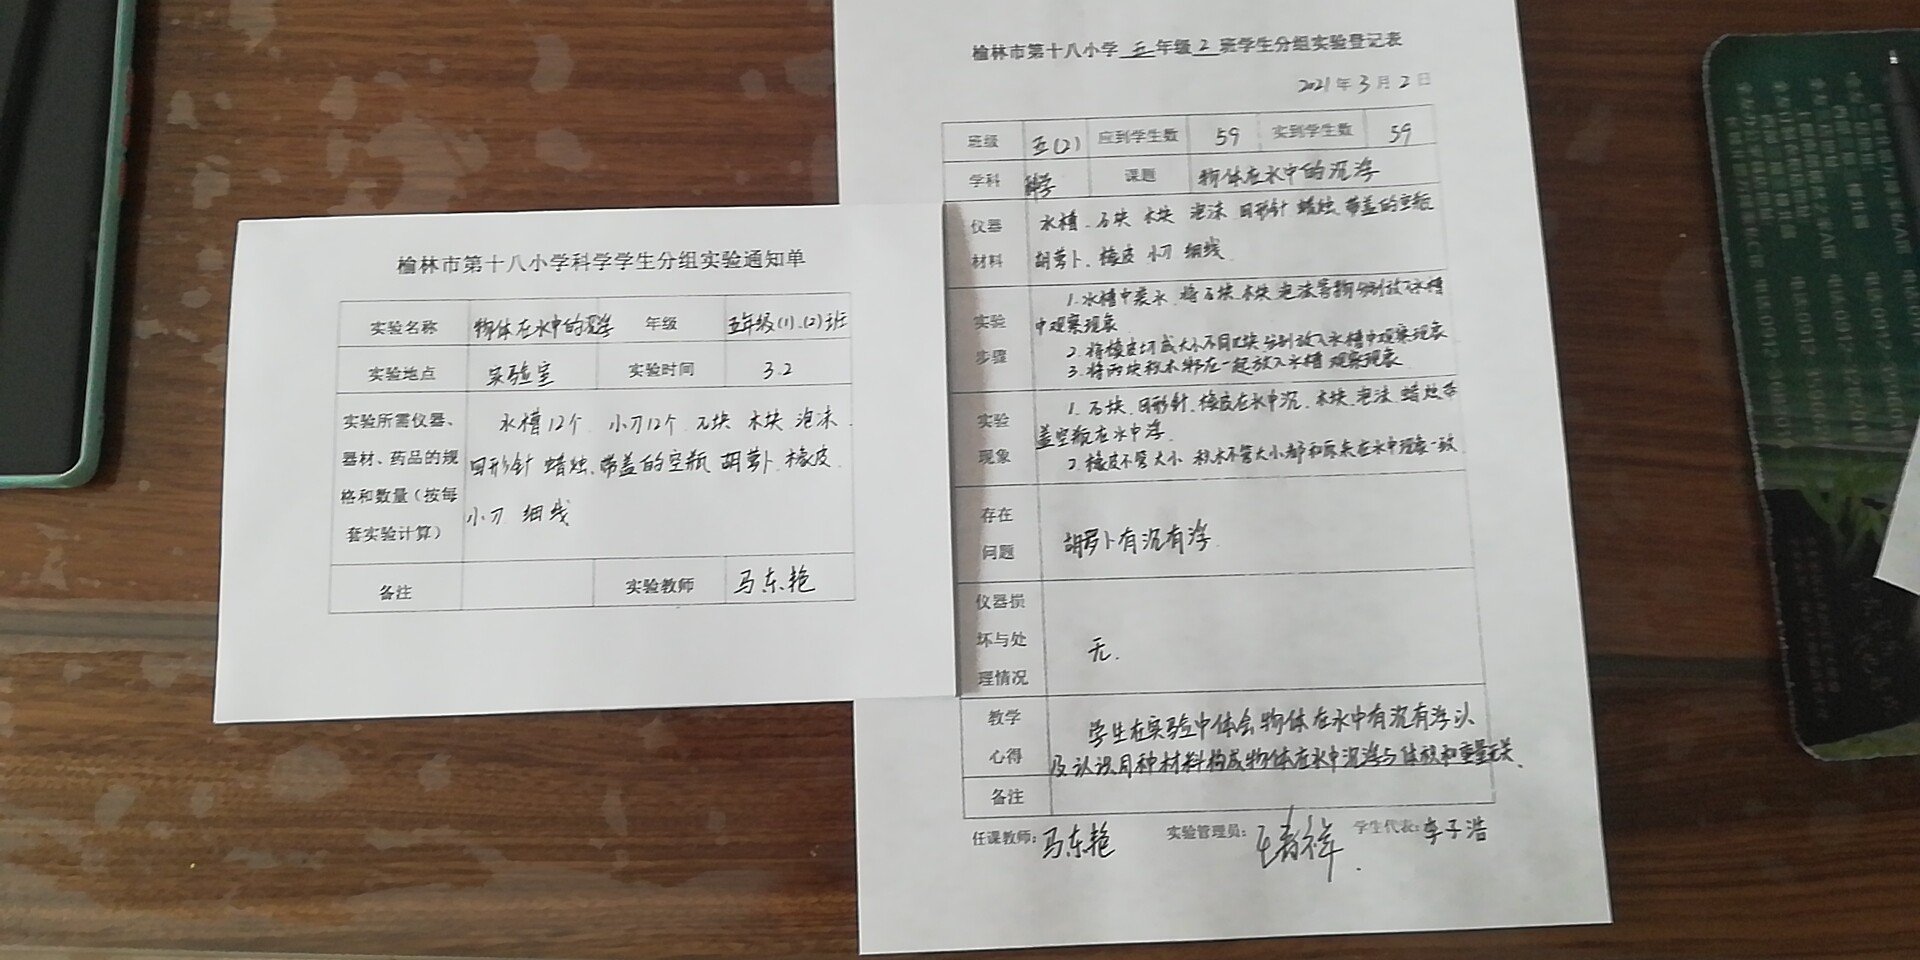 榆林市第十八小学科学学生分组实验通知单
实验名称 物体在水中的沉浮 年级 五年级(1)、(2)班
实验地点 实验室 实验时间 3.2
实验所需仪器、器材、药品的规格和数量（按每套实验计算）
水槽12个 小刀12个 石块 木块 泡沫
回形针 蜡烛、带盖的空瓶 胡萝卜 橡皮
小刀 细线
备注 实验教师 马东艳
榆林市第十八小学 五 年级 2 班学生分组实验登记表
2021年3月2日
班级 五(2) 应到学生数 59 实到学生数 59
学科 科学 课题 物体在水中的沉浮
仪器材料
水槽、石块 木块 泡沫 回形针 蜡烛、带盖的空瓶
胡萝卜、橡皮 小刀 细线
实验步骤
1.水槽中装水,将石块、木块、泡沫等物分别放入水槽
中观察现象
2.将橡皮切成大小不同几块分别放入水槽中观察现象
3.将两块积木绑在一起放入水槽 观察现象
实验现象
1.石块、回形针、橡皮在水中沉,木块、泡沫、蜡烛带
盖空瓶在水中浮.
2.橡皮不管大小 积木不管大小都和原来在水中现象一致
存在问题
胡萝卜有沉有浮
仪器损坏与处理情况
无.
教学心得
学生在实验中体会物体在水中有沉有浮以
及认识同种材料构成物体在水中沉浮与体积和重量无关.
备注
任课教师: 马东艳 实验管理员: 学生代表: 李子浩